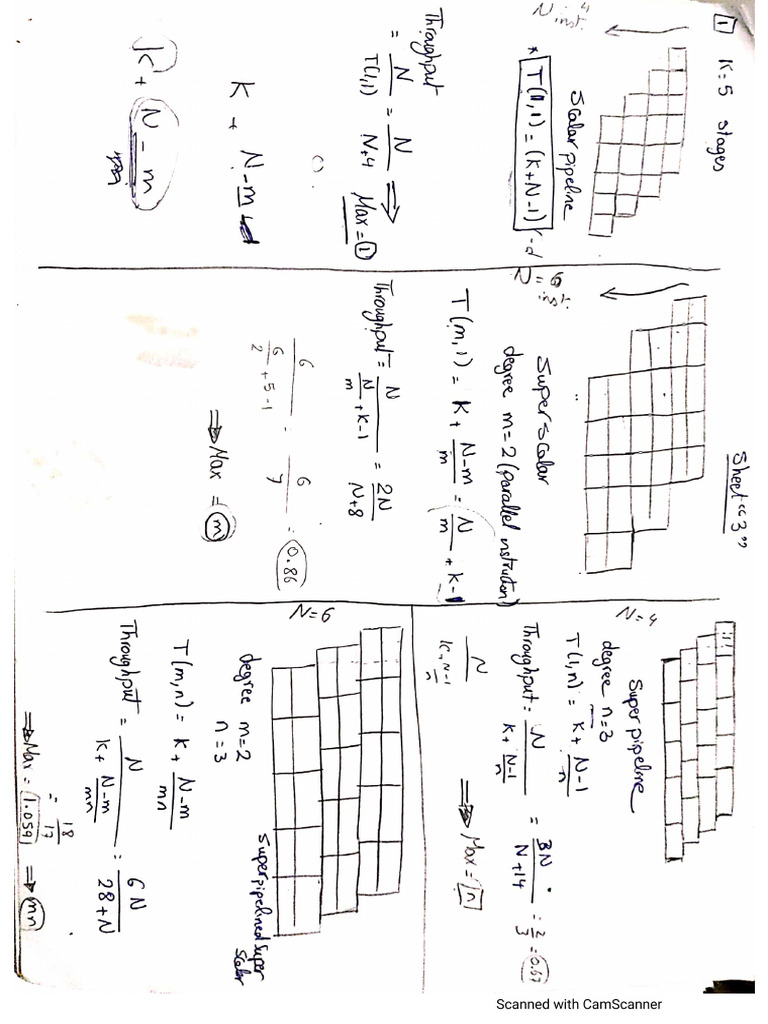 Sheet "3"
1 K=5 stages
N=4 inst.
Scalar pipeline
* T(1,1) = (K+N-1)
Throughput
= N / T(1,1) = N / N+4 ⇒ Max = 1
K + N-m
K + N-m
N=6 inst.
Superscalar
degree m=2 (parallel instruction)
T(m,1) = K + N-m / m = N / m + K-1
Throughput = N / N/m + K-1 = 2N / N+8
6 / 6/2 + 5-1 = 6 / 7 = 0.86
⇒ Max = m
N=4
Super pipeline
degree n=3
T(1,n) = K + N-1 / n
Throughput = N / K + N-1/n = 3N / N+14 = 2/3 = 0.67
N / K+ N-1/n
⇒ Max = n
N=6
superpipelined super scalar
degree m=2
n=3
T(m,n) = K + N-m / mn
Throughput = N / K + N-m/mn = 6N / 28+N
= 18 / 17
⇒ Max = 1.059 ⇒ mn
Scanned with CamScanner